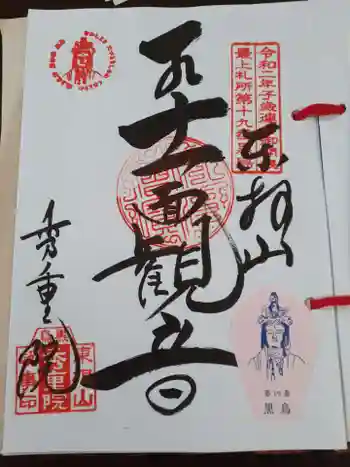 令和二年子歳連合御開帳
最上札所第十九番
東根山
十一面觀音
秀重院
東根山
秀重院
第19番
黒鳥